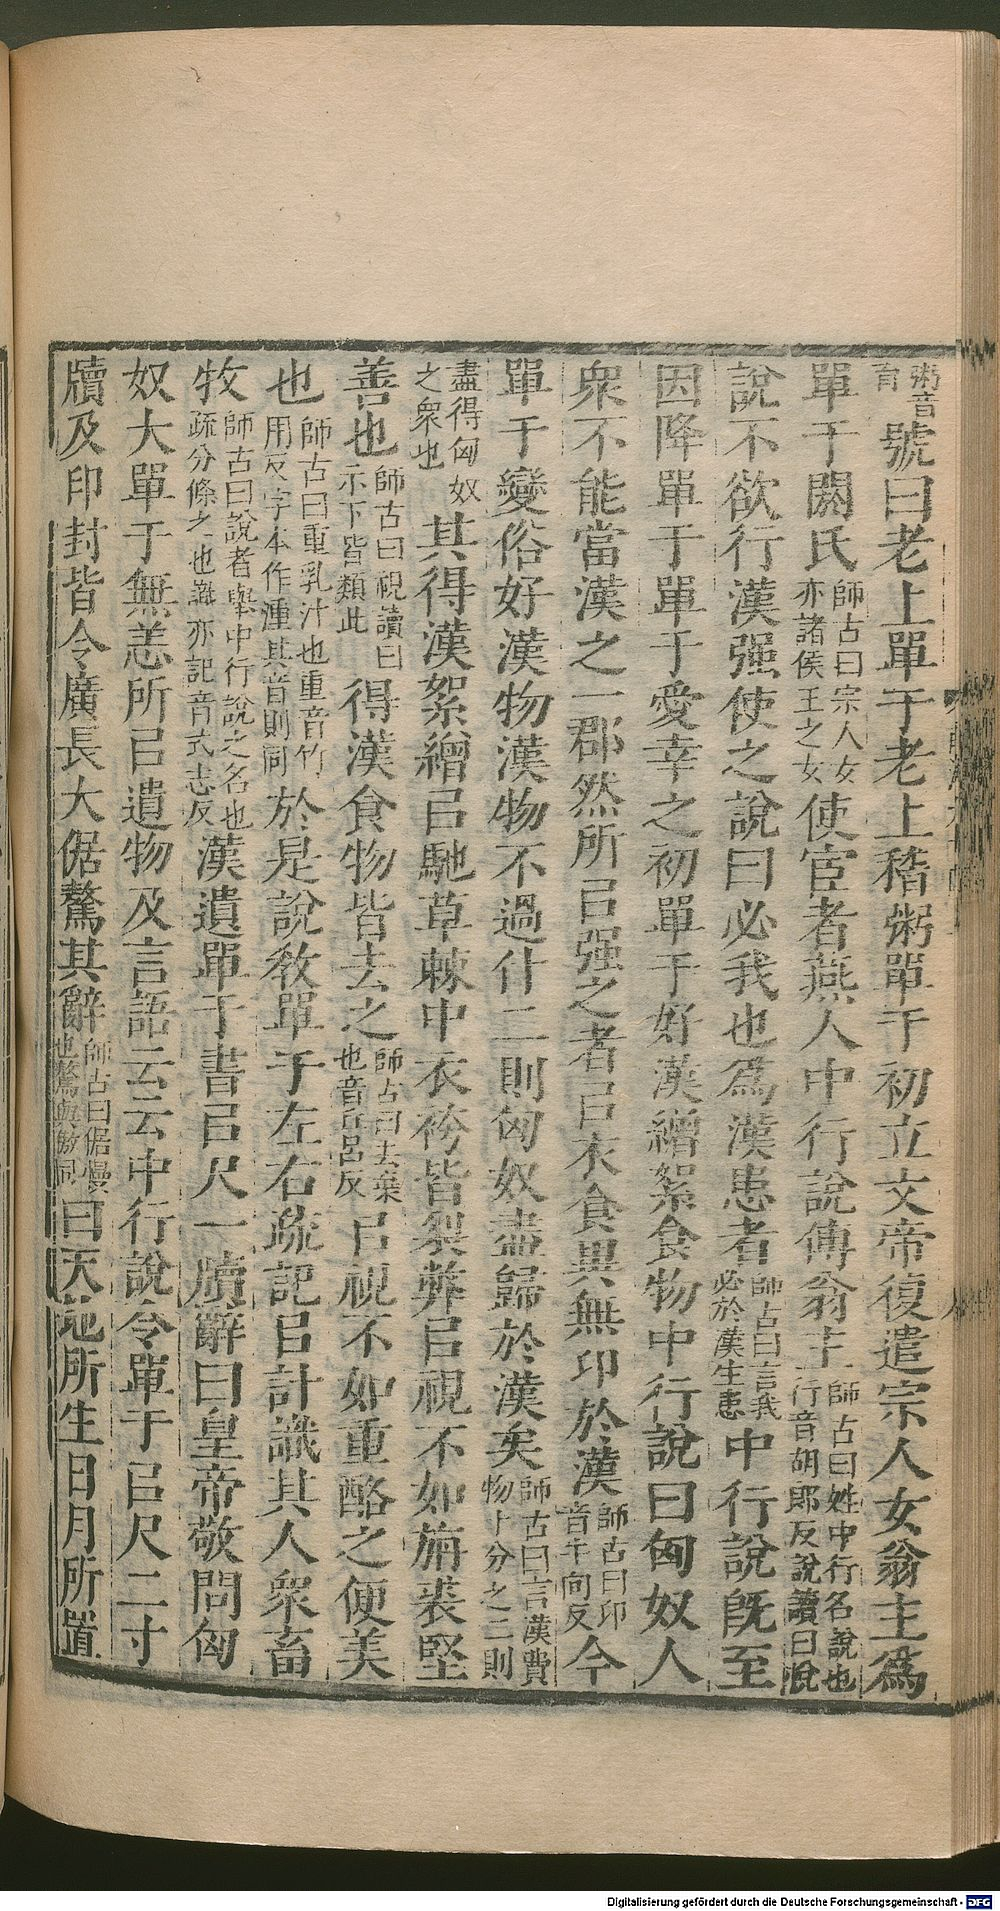 粥音育號曰老上單于老上稽粥單于初立文帝復遣宗人女翁主爲
單于閼氏師古曰宗人女亦諸侯王之女使宦者燕人中行說傅翁主師古曰姓中行名說也行音胡郎反說讀曰悅
說不欲行漢强使之說曰必我也爲漢患者師古曰言我必於漢生患中行說旣至
因降單于單于愛幸之初單于好漢繒絮食物中行說曰匈奴人
衆不能當漢之一郡然所㠯强之者㠯衣食異無卬於漢師古曰卬音牛向反今
單于變俗好漢物漢物不過什二則匈奴盡歸於漢矣師古曰言漢費物十分之二則
盡得匈奴之衆也其得漢絮繒㠯馳草棘中衣袴皆裂弊㠯視不如旃裘堅
善也師古曰視讀曰示下皆類此得漢食物皆去之師古曰去棄也音丘呂反㠯視不如重酪之便美
也師古曰重乳汁也重音竹用反字本作湩其音則同於是說敎單于左右疏記㠯計識其人衆畜
牧師古曰說者舉中行說之名也疏分條之也識亦記音式志反漢遺單于書㠯尺一牘辭曰皇帝敬問匈
奴大單于無恙所㠯遺物及言語云云中行說令單于㠯尺二寸
牘及印封皆令廣長大倨驁其辭師古曰倨慢也驁與傲同曰天地所生日月所置
Digitalisierung gefördert durch die Deutsche Forschungsgemeinschaft - DFG